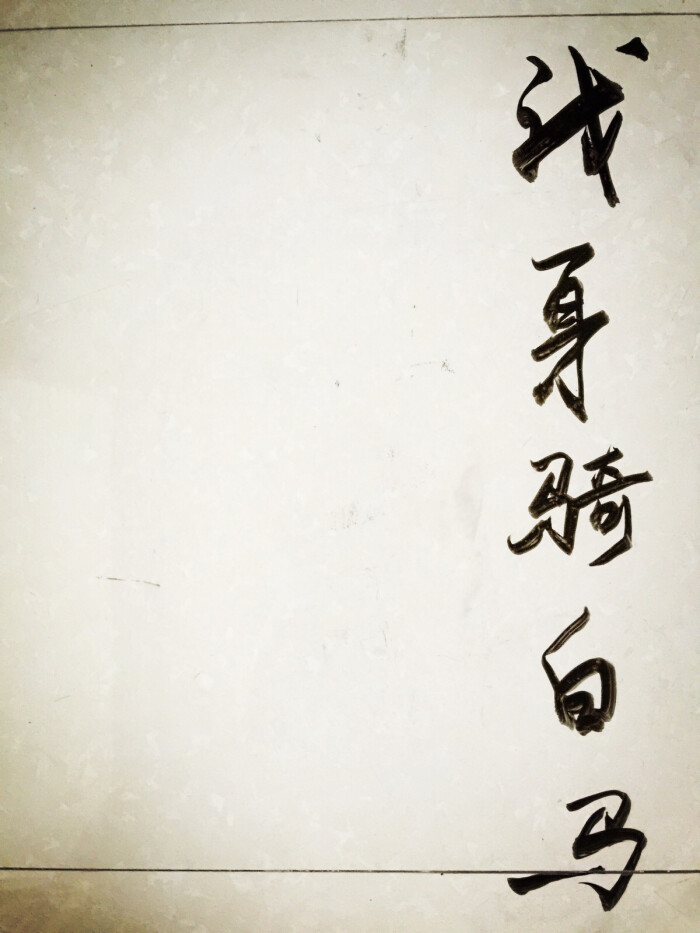 我身骑白马